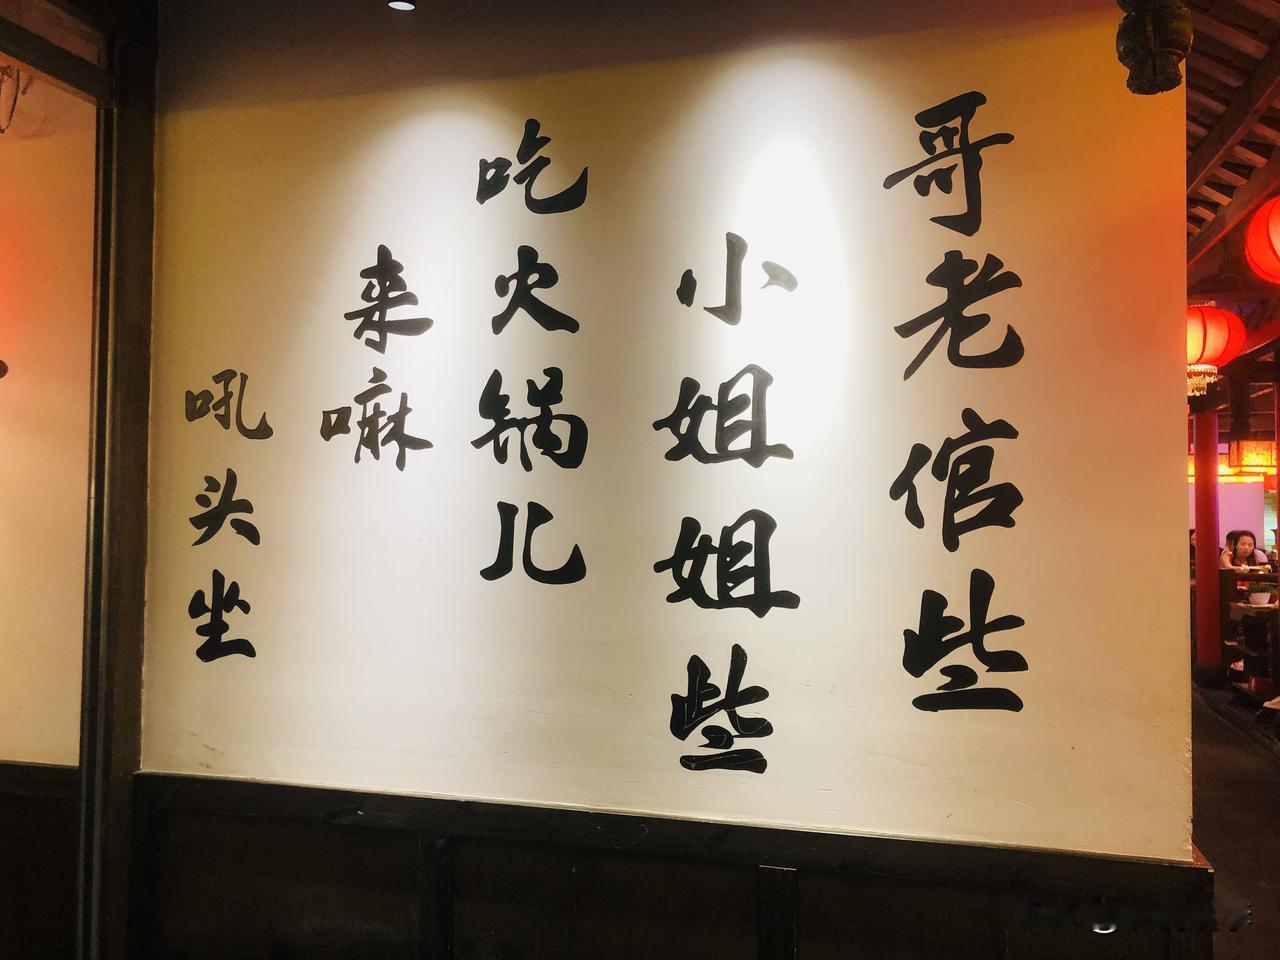 哥老倌些
小姐姐些
吃火锅儿
来嘛
吼头坐